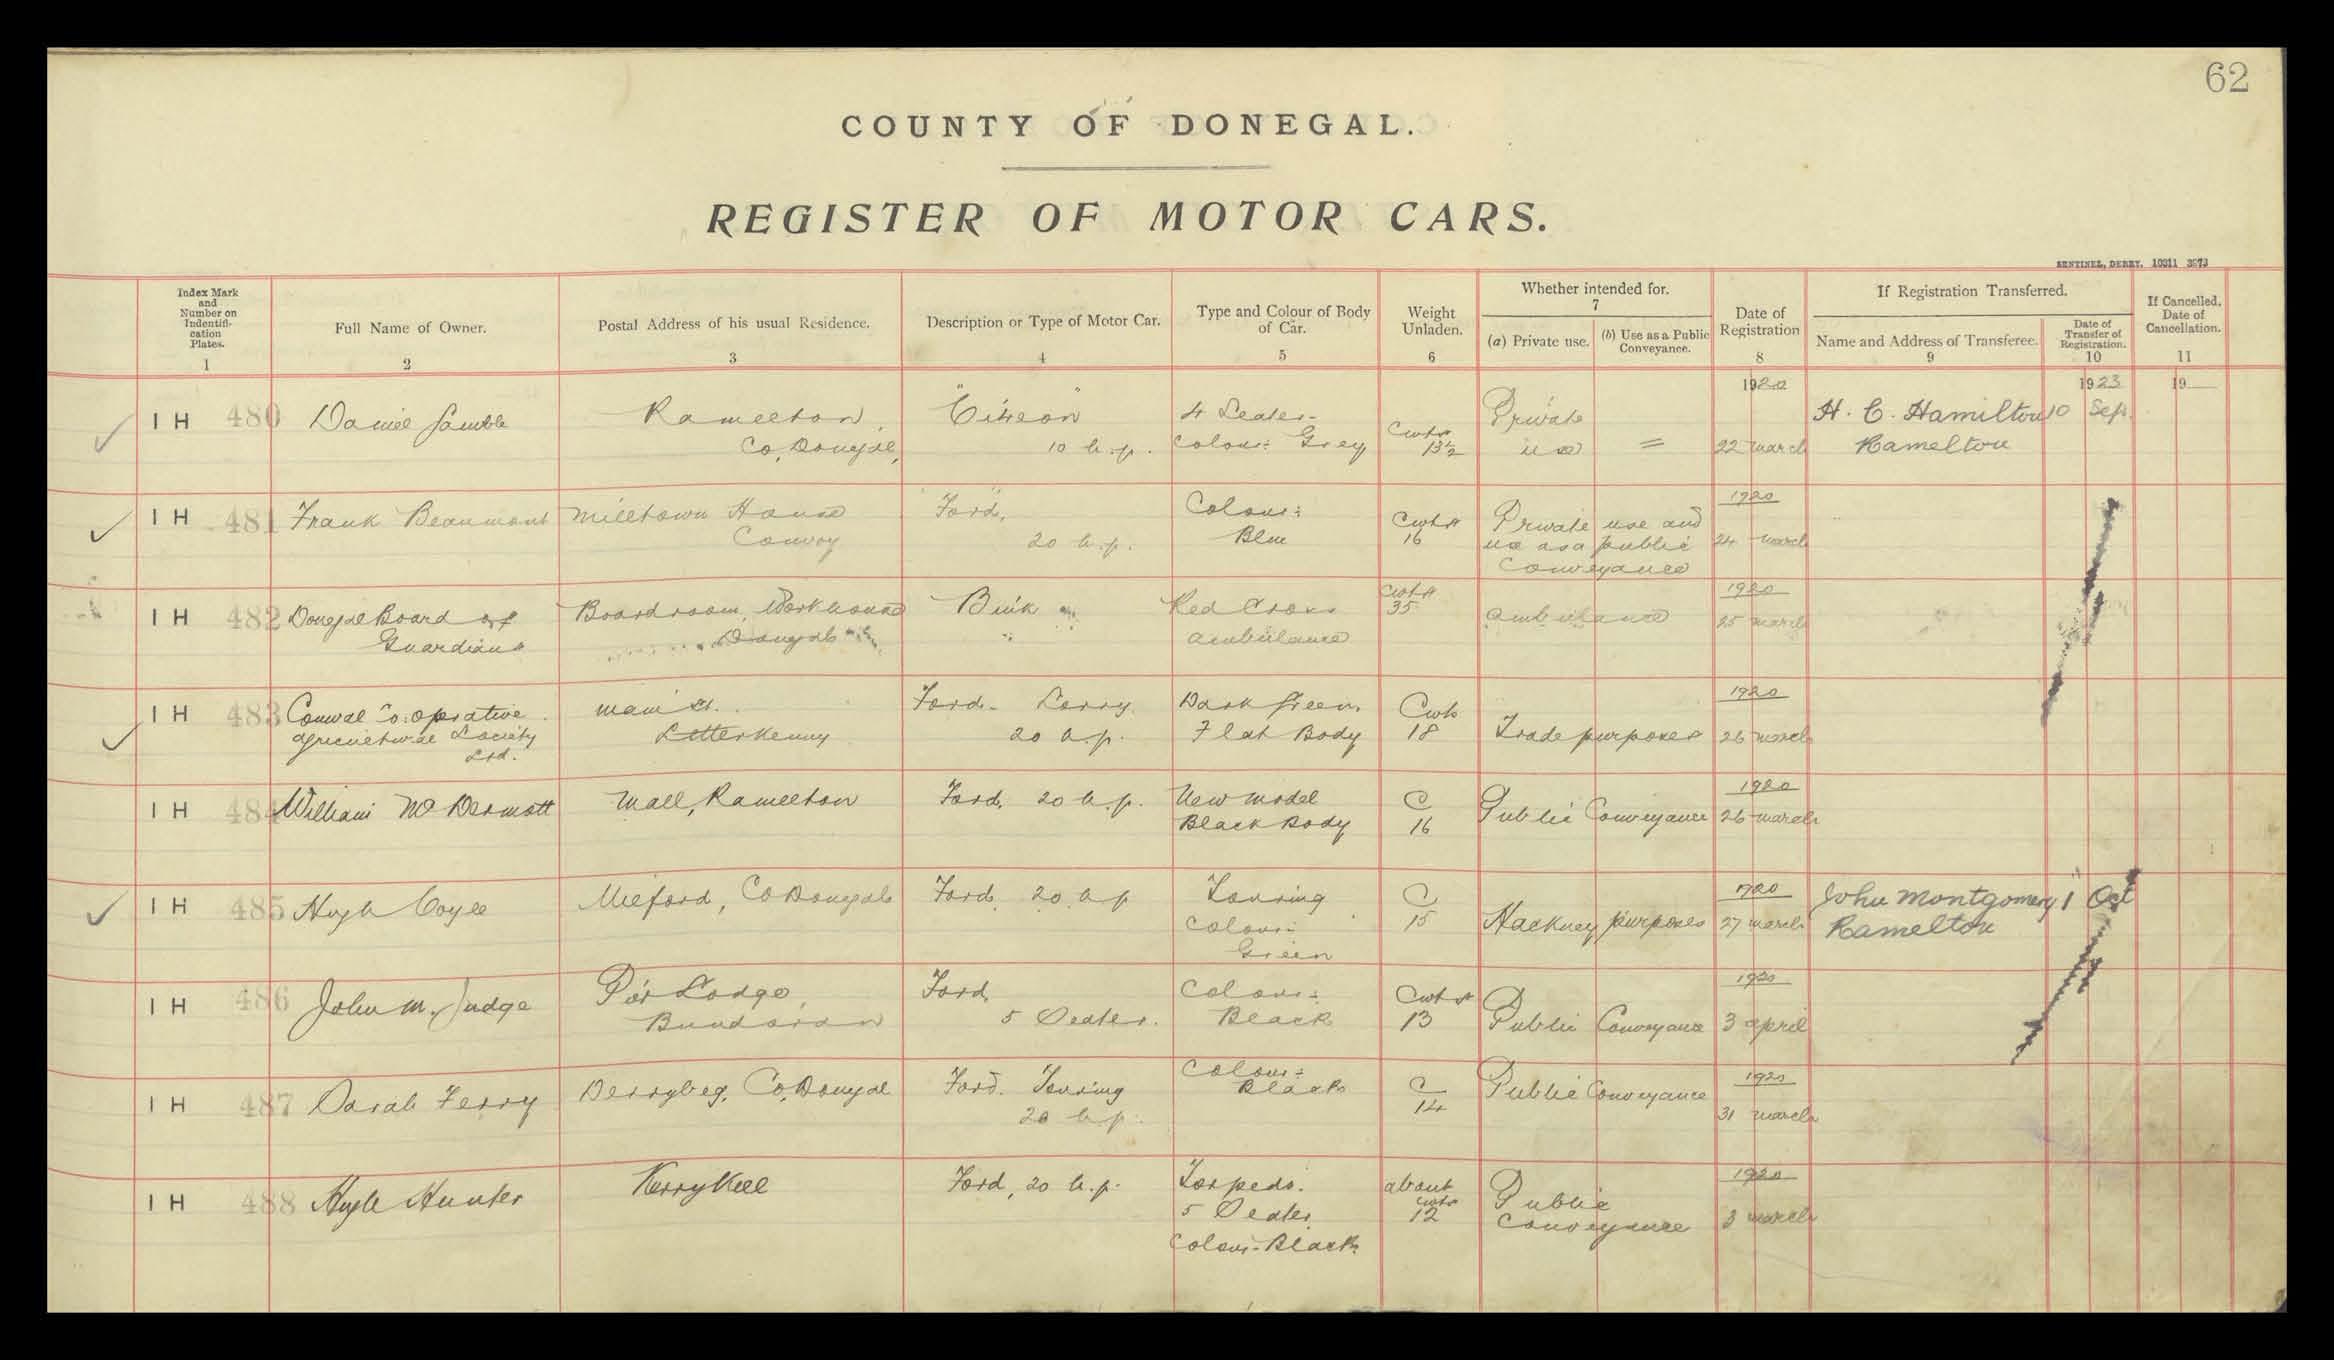 62
COUNTY OF DONEGAL.
REGISTER OF MOTOR CARS.
SENTINEL, DERRY. 10011 3973
Index Mark
and
Number on
Indentifi-
cation
Plates.
1
Full Name of Owner.
2
Postal Address of his usual Residence.
3
Description or Type of Motor Car.
4
Type and Colour of Body
of Car.
5
Weight
Unladen.
6
Whether intended for.
7
(a) Private use.
(b) Use as a Public
Conveyance.
Date of
Registration
8
If Registration Transferred.
Name and Address of Transferee.
9
Date of
Transfer of
Registration.
10
If Cancelled,
Date of
Cancellation.
11
I H 480
Daniel Gamble
Ramelton
Co. Donegal,
"Citreon"
10 h.p.
4 Seater-
Colour: Grey
Cwts
13½
Private
use
=
1920
22 March
H. C. Hamilton
Ramelton
1923
10 Sep.
19
I H 481
Frank Beaumont
Milltown House
Convoy
Ford,
20 h.p.
Colour:
Blue
Cwts
16
Private use and
use as a public
Conveyance
1920
24 March
I H 482
Donegal Board of
Guardians
Boardroom, Workhouse
Donegal
Buik
Red Cross
ambulance
Cwts
35
ambulance
1920
25 March
I H 483
Conwal Co. operative
agricultural Society
Ltd.
Main St.
Letterkenny
Ford- Lorry
20 h.p.
Dark Green
Flat Body
Cwts
18
Trade purposes
1920
26 March
I H 484
William McDermott
Mall, Ramelton
Ford, 20 h.p.
New model
Black Body
C
16
Public Conveyance
1920
26 March
I H 485
Hugh Coyle
Milford, Co Donegal
Ford, 20 h p
Touring
Colour:
Green
C
15
Hackney purposes
1920
27 March
John Montgomery
Ramelton
1 Oct
I H 486
John M. Judge
Lodge,
Bundoran
Ford,
5 Seater.
Colour:
Black
Cwts
13
Public Conveyance
1920
3 April
I H 487
Sarah Ferry
Derrybeg, Co. Donegal
Ford. Touring
20 h p.
Colour:
Black
C
14
Public Conveyance
1920
31 March
I H 488
Hugh Hunter
Kerrykeel
Ford, 20 h.p.
Torpedo.
5 Seater
Colour- Black
about
cwts
12
Public
Conveyance
1920
3 March